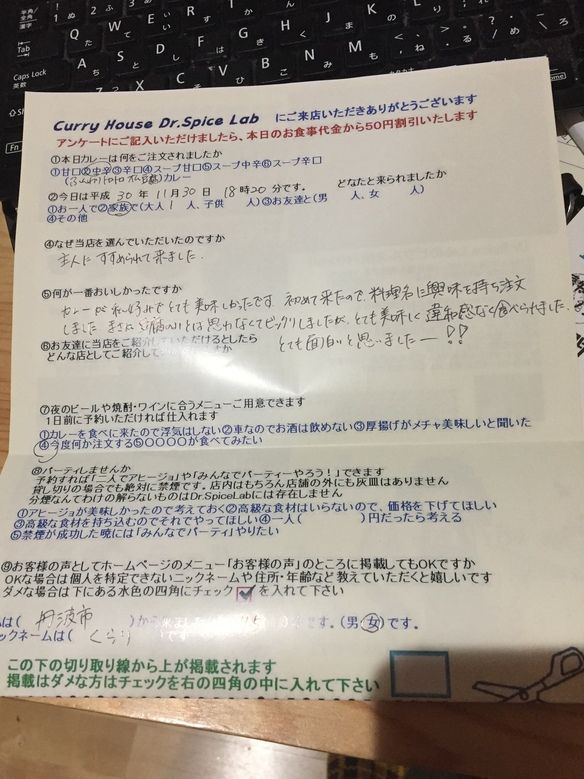 Curry House Dr.Spice Lab にご来店いただきありがとうございます
アンケートにご記入いただけましたら、本日のお食事代金から50円割引いたします
①本日カレーは何をご注文されましたか
①甘口②中辛③辛口④スープ甘口⑤スープ中辛⑥スープ辛口
カレー
②今日は平成 30 年 11月30日 18時20分です。 どなたと来られましたか
①お一人で②家族で(大人 1 人、子供 人)③お友達と(男 人、女 人)
④その他
④なぜ当店を選んでいただいたのですか
主人にすすめられて来ました.
⑤何が一番おいしかったですか
カレーが私好みでとても美味しかったです. 初めて来たので、料理名に興味を持ち注文
しました. まさに とは思わなくてビックリしましたが、とても美味しく違和感なく食べられました.
⑥お友達に当店をご紹介していただけるとしたら
どんな店としてご紹介して すか
とても面白いと思いましたー!!
⑦夜のビールや焼酎・ワインに合うメニューご用意できます
1日前に予約いただければ仕入れます
①カレーを食べに来たので浮気はしない②車なのでお酒は飲めない③厚揚げがメチャ美味しいと聞いた
④今度何か注文する⑤〇〇〇〇が食べてみたい
⑧パーティしませんか
予約すれば「二人でアヒージョ」や「みんなでパーティーやろう!」できます
貸し切りの場合でも絶対に禁煙です。店内はもちろん店舗の外にも灰皿はありません
分煙なんてわけの解らないものはDr.SpiceLabには存在しません
①アヒージョが美味しかったので考えておく②高級な食材はいらないので、価格を下げてほしい
③高級な食材を持ち込むのでそれでやってほしい④一人( )円だったら考える
⑤禁煙が成功した暁には「みんなでパーティ」やりたい
⑨お客様の声としてホームページのメニュー「お客様の声」のところに掲載してもOKですか
OKな場合は個人を特定できないニックネームや住所・年齢など教えていただくと嬉しいです
ダメな場合は下にある水色の四角にチェック を入れて下さい
は( 丹波市 )から です。(男・女)です。
ックネームは( くらり
この下の切り取り線から上が掲載されます
掲載はダメな方はチェックを右の四角の中に入れて下さい